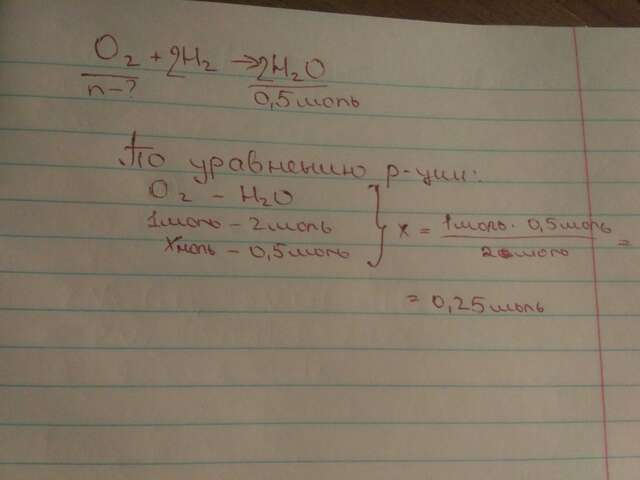 O₂ + 2H₂ → 2H₂O
n - ? 0,5 моль
По уравнению р-ции:
O₂ – H₂O
1 моль – 2 моль
x моль – 0,5 моль
x = 1 моль · 0,5 моль / 2 моль =
= 0,25 моль